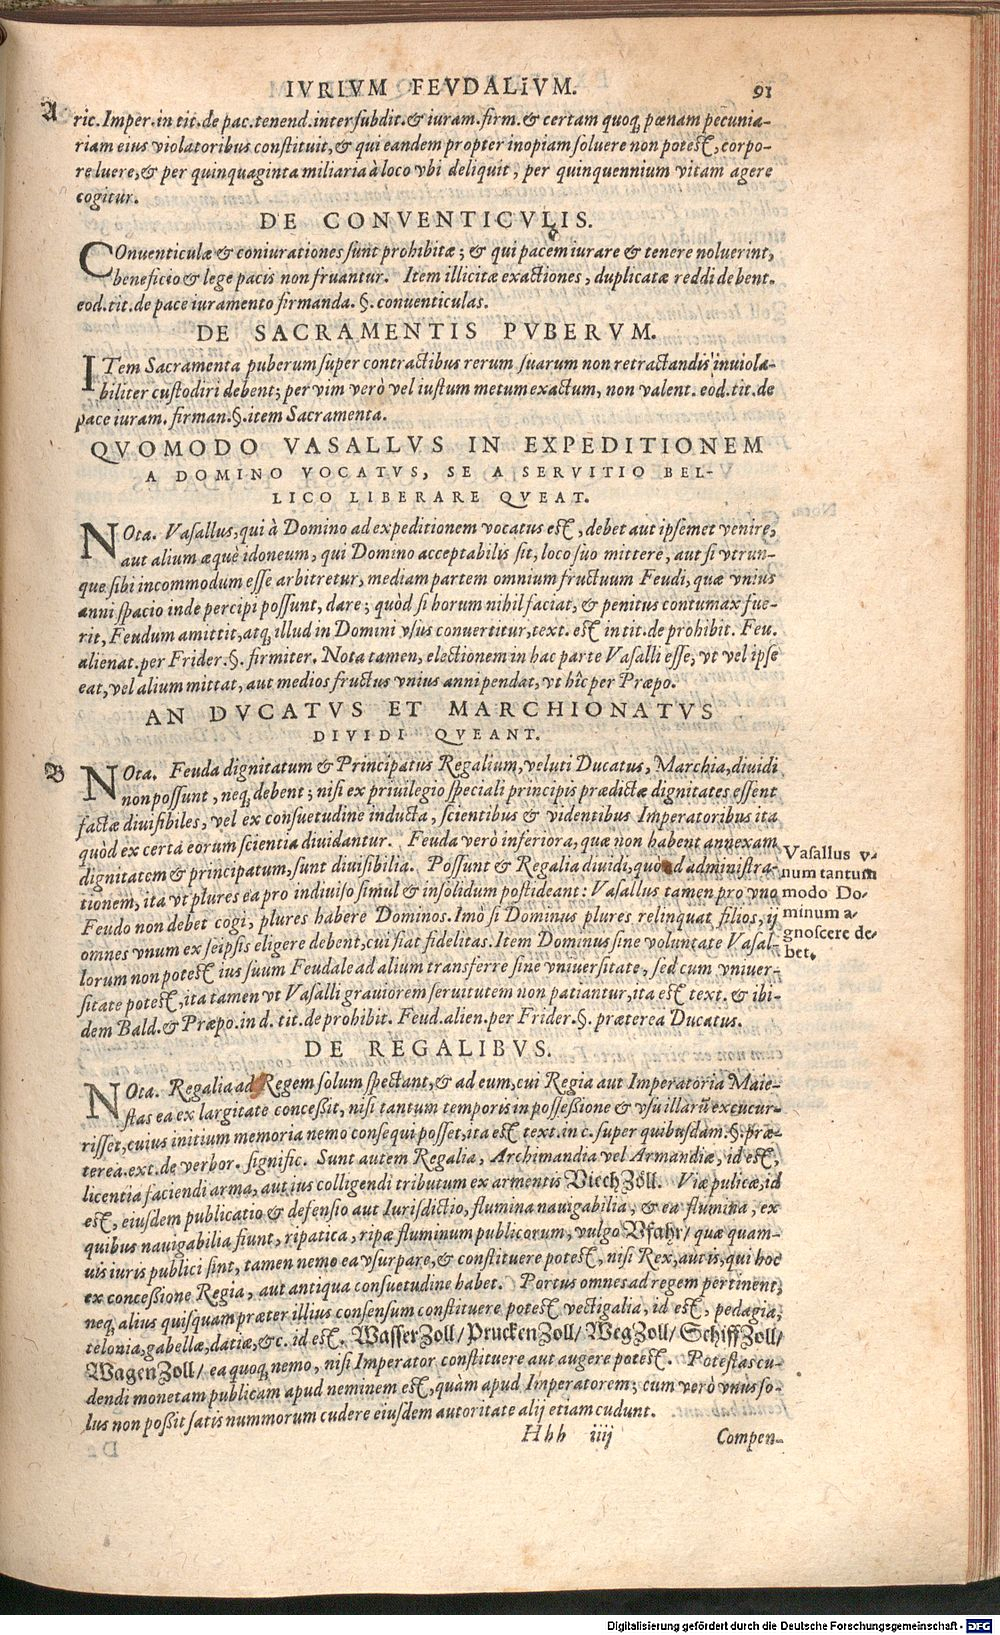 IVRIVM FEVDALIVM. 91
A
ric. Imper. in tit. de pac. tenend. inter subdit. & iuram. firm. & certam quoq; pœnam pecunia-
riam eius violatoribus constituit, & qui eandem propter inopiam soluere non potest, corpo-
re luere, & per quinquaginta miliaria à loco vbi deliquit, per quinquennium vitam agere
cogitur.
DE CONVENTICVLIS.
COnuenticulæ & coniurationes sunt prohibitæ; & qui pacem iurare & tenere noluerint,
beneficio & lege pacis non fruantur. Item illicitæ exactiones, duplicatæ reddi debent.
eod. tit. de pace iuramento firmanda. §. conuenticulas.
DE SACRAMENTIS PVBERVM.
ITem Sacramenta puberum super contractibus rerum suarum non retractandis inuiola-
biliter custodiri debent; per vim verò vel iustum metum exactum, non valent. eod. tit. de
pace iuram. firman. §. item Sacramenta.
QVOMODO VASALLVS IN EXPEDITIONEM
A DOMINO VOCATVS, SE A SERVITIO BEL-
LICO LIBERARE QVEAT.
NOta. Vasallus, qui à Domino ad expeditionem vocatus est, debet aut ipsemet venire,
aut alium æquè idoneum, qui Domino acceptabilis sit, loco suo mittere, aut si vtrun-
que sibi incommodum esse arbitretur, mediam partem omnium fructuum Feudi, quæ vnius
anni spacio inde percipi possunt, dare; quòd si horum nihil faciat, & penitus contumax fue-
rit, Feudum amittit, atq; illud in Domini vsus conuertitur, text. est in tit. de prohibit. Feu.
alienat. per Frider. §. firmiter. Nota tamen, electionem in hac parte Vasalli esse, vt vel ipse
eat, vel alium mittat, aut medios fructus vnius anni pendat, vt hîc per Præpo.
AN DVCATVS ET MARCHIONATVS
DIVIDI QVEANT.
B
NOta. Feuda dignitatum & Principatus Regalium, veluti Ducatus, Marchia, diuidi
non possunt, neq; debent; nisi ex priuilegio speciali principis prædictæ dignitates essent
factæ diuisibiles, vel ex consuetudine inducta, scientibus & videntibus Imperatoribus ita
quòd ex certa eorum scientia diuidantur. Feuda verò inferiora, quæ non habent annexam
dignitatem & principatum, sunt diuisibilia. Possunt & Regalia diuidi, quoad administra-
tionem, ita vt plures ea pro indiuiso simul & insolidum possideant: Vasallus tamen pro vno
Feudo non debet cogi, plures habere Dominos. Imò si Dominus plures relinquat filios, ij
omnes vnum ex seipsis eligere debent, cui fiat fidelitas. Item Dominus sine voluntate Vasal-
lorum non potest ius suum Feudale ad alium transferre sine vniuersitate, sed cum vniuer-
sitate potest, ita tamen vt Vasalli grauiorem seruitutem non patiantur, ita est text. & ibi-
dem Bald. & Præpo. in d. tit. de prohibit. Feud. alien. per Frider. §. præterea Ducatus.
Vasallus v-
num tantum
modo Do-
minum a-
gnoscere de-
bet.
DE REGALIBVS.
NOta. Regalia ad Regem solum spectant, & ad eum, cui Regia aut Imperatoria Maie-
stas ea ex largitate concessit, nisi tantum temporis in possessione & vsu illarũ excucur-
risset, cuius initium memoria nemo consequi posset, ita est text. in c. super quibusdam. §. præ-
terea. ext. de verbor. signific. Sunt autem Regalia, Archimandia vel Armandiæ, id est,
licentia faciendi arma, aut ius colligendi tributum ex armentis Viech Zöll. Viæ pulicæ, id
est, eiusdem publicatio & defensio aut Iurisdictio, flumina nauigabilia, & ea flumina, ex
quibus nauigabilia fiunt, ripatica, ripæ fluminum publicorum, vulgo Vfahr/ quæ quam-
uis iuris publici sint, tamen nemo ea vsurpare, & constituere potest, nisi Rex, aut is, qui hoc
ex concessione Regia, aut antiqua consuetudine habet. Portus omnes ad regem pertinent,
neq; alius quisquam præter illius consensum constituere potest vectigalia, id est, pedagia,
telonia, gabellæ, datiæ, &c. id est. Wasser Zoll/ Prucken Zoll/ Weg Zoll/ Schiff Zoll/
Wagen Zoll/ ea quoq; nemo, nisi Imperator constituere aut augere potest. Potestas cu-
dendi monetam publicam apud neminem est, quàm apud Imperatorem; cum verò vnus so-
lus non possit satis nummorum cudere eiusdem autoritate alij etiam cudunt.
Hhh iiij Compen-
Digitalisierung gefördert durch die Deutsche Forschungsgemeinschaft - DFG